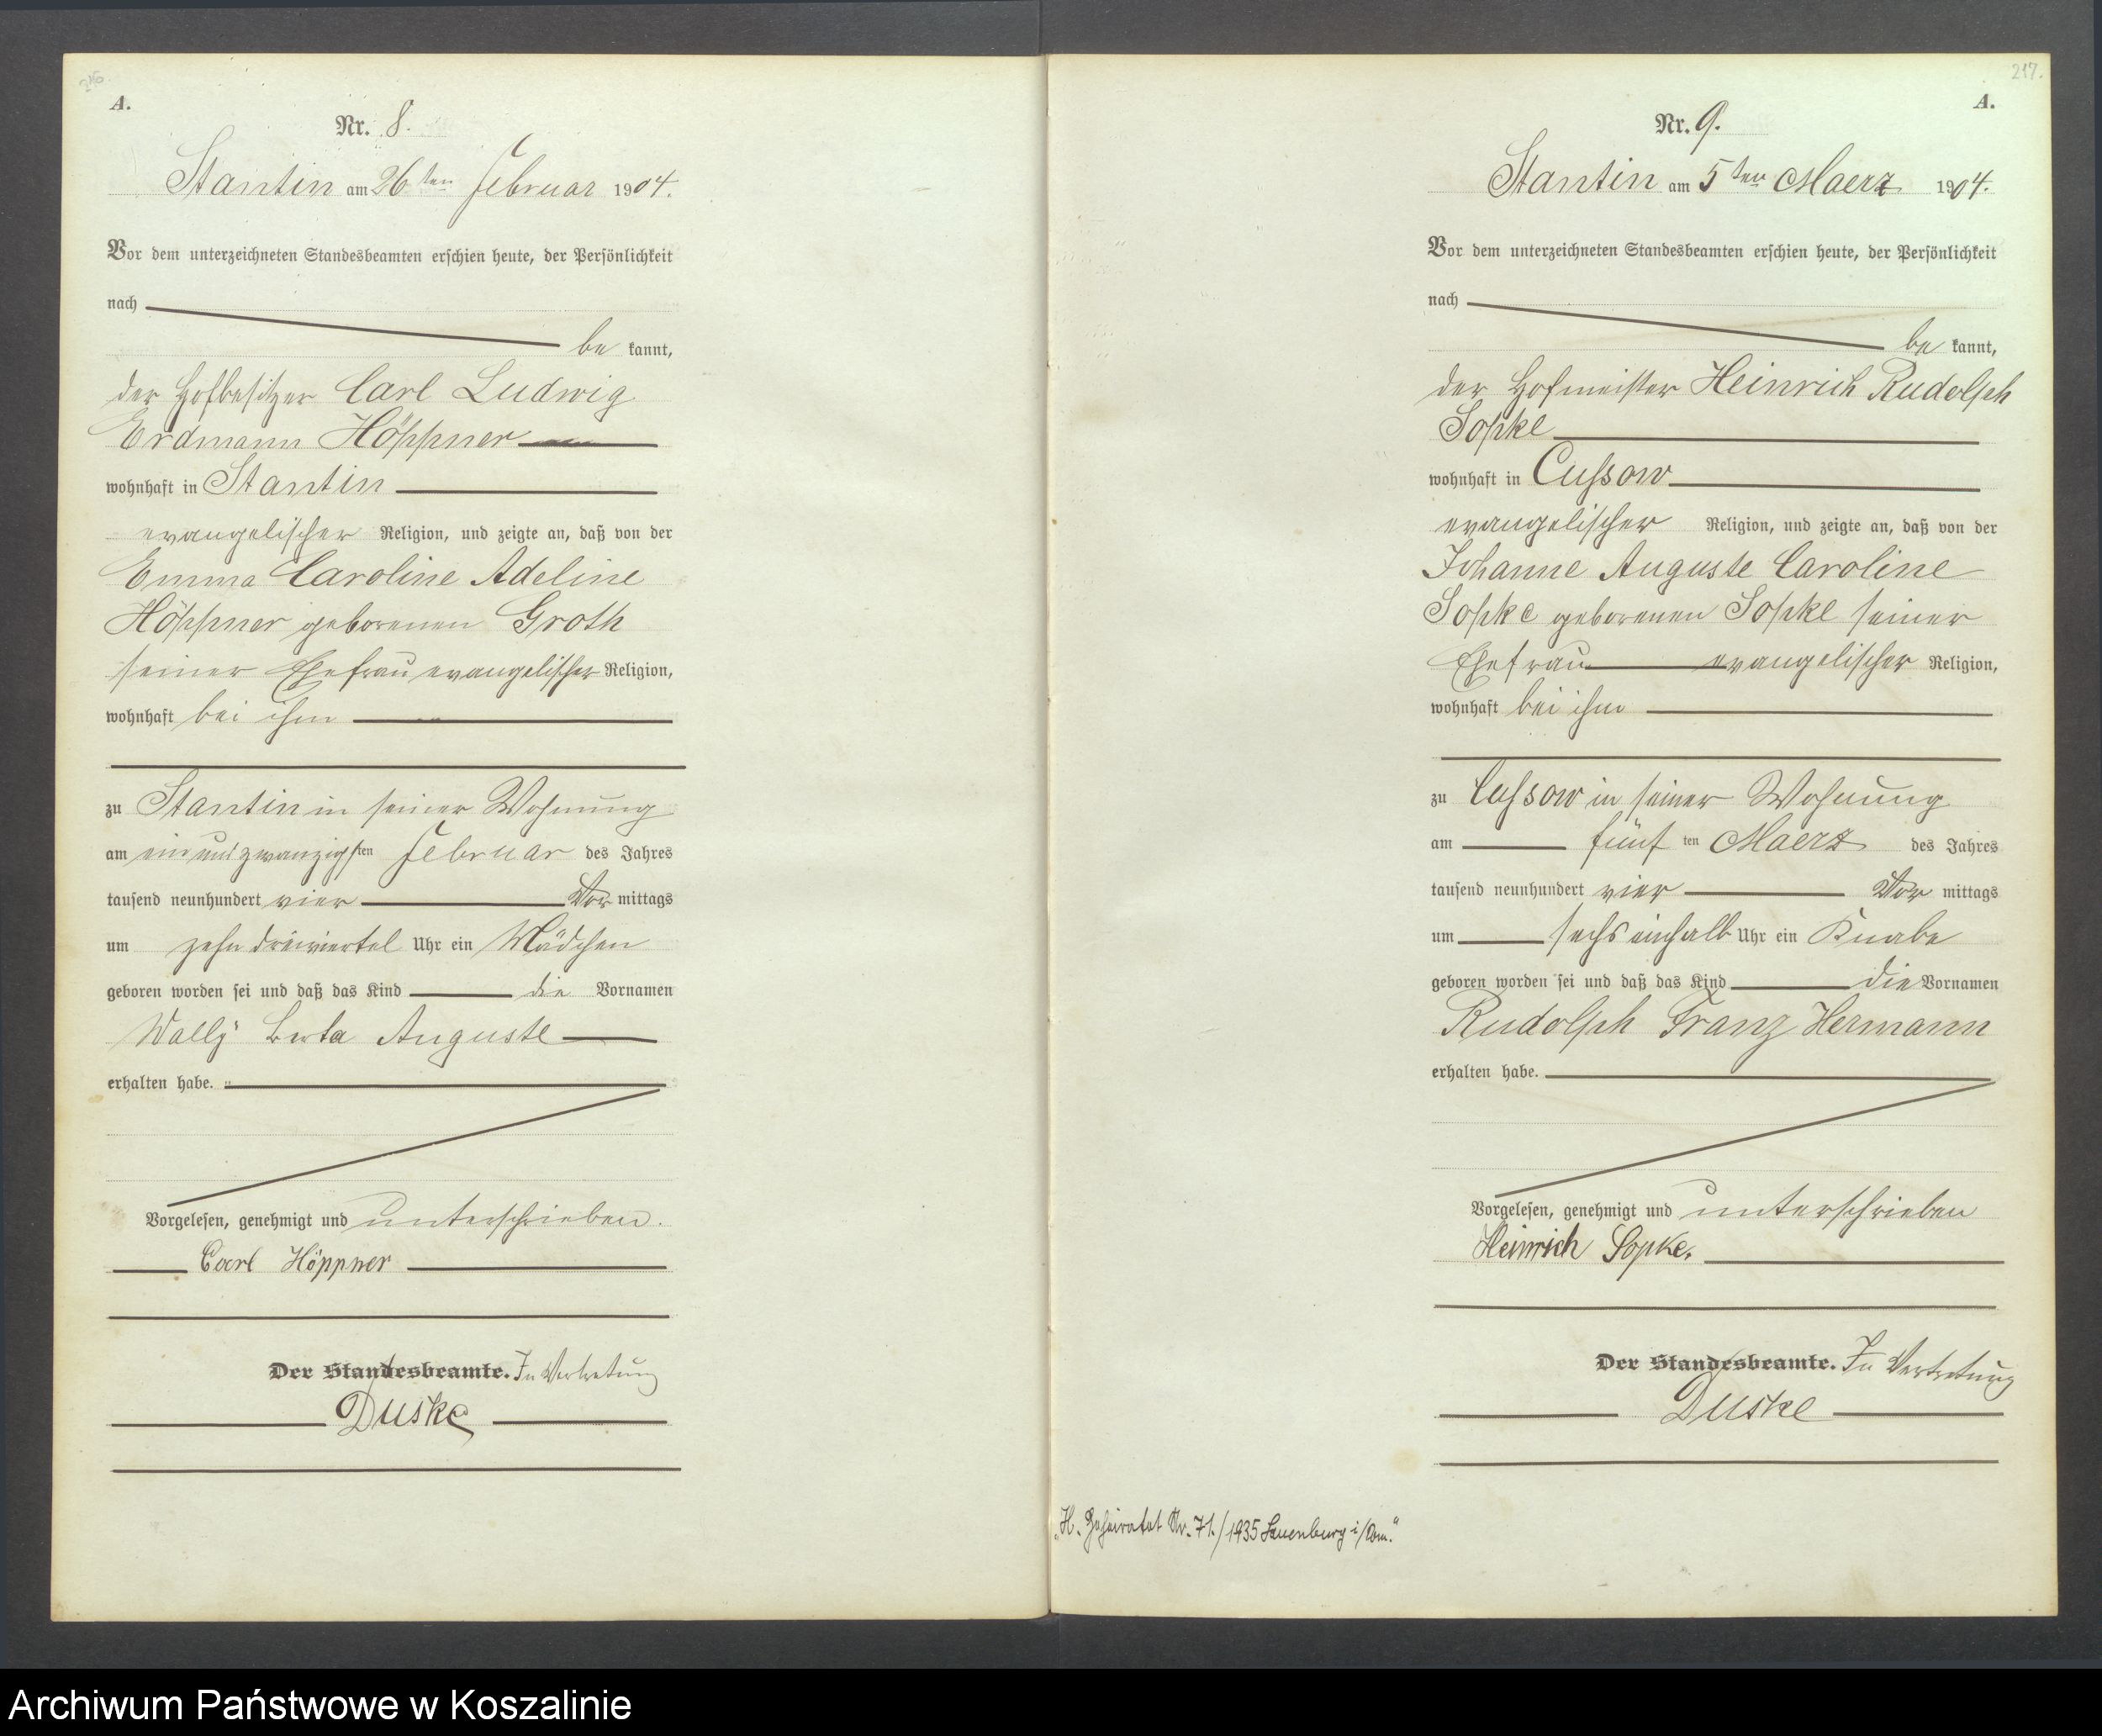 216.
A.
Nr. 8.
Stantin am 26ten Februar 1904.
Vor dem unterzeichneten Standesbeamten erschien heute, der Persönlichkeit
nach
be kannt,
der Hofbesitzer Carl Ludwig
Erdmann Höppner
wohnhaft in Stantin
evangelischer Religion, und zeigte an, daß von der
Emma Caroline Adeline
Höppner geborenen Groth
seiner Ehefrau evangelischer Religion,
wohnhaft bei ihm
zu Stantin in seiner Wohnung
am ein und zwanzigsten Februar des Jahres
tausend neunhundert vier Vor mittags
um zehn dreiviertel Uhr ein Mädchen
geboren worden sei und daß das Kind die Vornamen
Wally Berta Auguste
erhalten habe.
Vorgelesen, genehmigt und unterschrieben.
Carl Höppner
Der Standesbeamte. In Vertretung
Duske
217.
A.
Nr. 9.
Stantin am 5ten Maerz 1904.
Vor dem unterzeichneten Standesbeamten erschien heute, der Persönlichkeit
nach
be kannt,
der Hofmeister Heinrich Rudolph
Sopke
wohnhaft in Cussow
evangelischer Religion, und zeigte an, daß von der
Johanne Auguste Caroline
Sopke geborenen Sopke seiner
Ehefrau evangelischer Religion,
wohnhaft bei ihm
zu Cussow in seiner Wohnung
am fünf ten Maerz des Jahres
tausend neunhundert vier Vor mittags
um sechs einhalb Uhr ein Knabe
geboren worden sei und daß das Kind die Vornamen
Rudolph Franz Hermann
erhalten habe.
Vorgelesen, genehmigt und unterschrieben
Heinrich Sopke.
Der Standesbeamte. In Vertretung
Duske
„H. Geheiratet Nr. 71./1935 Lauenburg i/Pom."
Archiwum Państwowe w Koszalinie